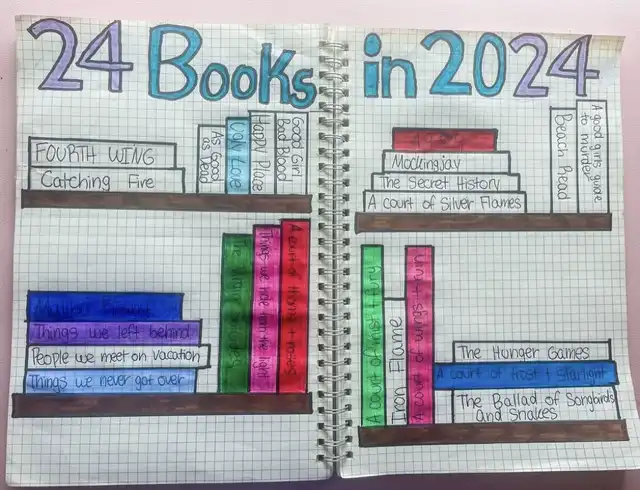 24 Books
in 2024
FOURTH WING
Catching Fire
As Good
as Dead
Ugly Love
Happy Place
Good Girl
Bad Blood
Mockingjay
The Secret History
A court of Silver Flames
Beach Read
A good girls guide
to murder
Things we left behind
People we meet on vacation
Things we never got over
Things we hide from the light
A court of thorns + roses
A court of mist + fury
Iron Flame
A court of wings + ruin
The Hunger Games
A court of frost + starlight
The Ballad of Songbirds
and Snakes